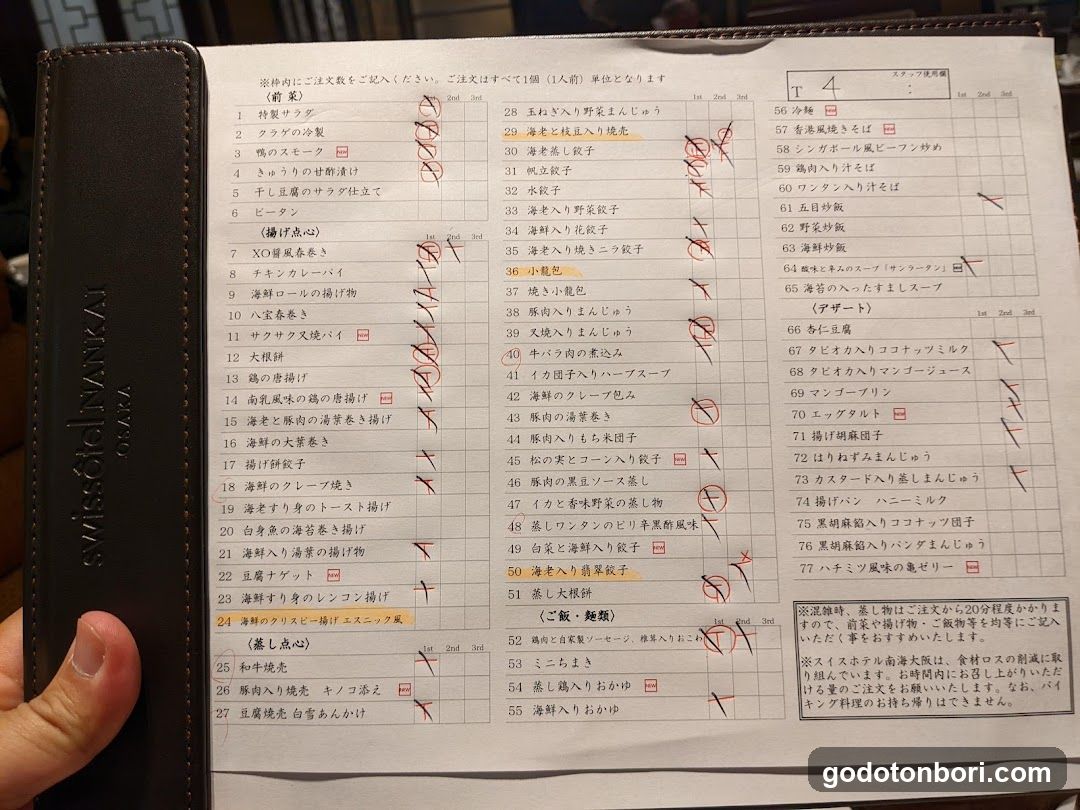 swissôtel NANKAI
OSAKA
※枠内にご注文数をご記入ください。ご注文はすべて1個（1人前）単位となります
〈前 菜〉
1st 2nd 3rd
1 特製サラダ
2 クラゲの冷製
3 鴨のスモーク NEW
4 きゅうりの甘酢漬け
5 干し豆腐のサラダ仕立て
6 ピータン
〈揚げ点心〉
1st 2nd 3rd
7 XO醤風春巻き
8 チキンカレーパイ
9 海鮮ロールの揚げ物
10 八宝春巻き
11 サクサク叉焼パイ NEW
12 大根餅
13 鶏の唐揚げ
14 南乳風味の鶏の唐揚げ NEW
15 海老と豚肉の湯葉巻き揚げ
16 海鮮の大葉巻き
17 揚げ餅餃子
18 海鮮のクレープ焼き
19 海老すり身のトースト揚げ
20 白身魚の海苔巻き揚げ
21 海鮮入り湯葉の揚げ物
22 豆腐ナゲット NEW
23 海鮮すり身のレンコン揚げ
24 海鮮のクリスピー揚げ エスニック風
〈蒸し点心〉
1st 2nd 3rd
25 和牛焼売
26 豚肉入り焼売 キノコ添え NEW
27 豆腐焼売 白雪あんかけ
1st 2nd 3rd
28 玉ねぎ入り野菜まんじゅう
29 海老と枝豆入り焼売
30 海老蒸し餃子
31 帆立餃子
32 水餃子
33 海老入り野菜餃子
34 海鮮入り花餃子
35 海老入り焼きニラ餃子
36 小龍包
37 焼き小龍包
38 豚肉入りまんじゅう
39 叉焼入りまんじゅう
40 牛バラ肉の煮込み
41 イカ団子入りハーブスープ
42 海鮮のクレープ包み
43 豚肉の湯葉巻き
44 豚肉入りもち米団子
45 松の実とコーン入り餃子 NEW
46 豚肉の黒豆ソース蒸し
47 イカと香味野菜の蒸し物
48 蒸しワンタンのピリ辛黒酢風味
49 白菜と海鮮入り餃子 NEW
50 海老入り翡翠餃子
51 蒸し大根餅
〈ご飯・麺類〉
1st 2nd 3rd
52 鶏肉と自家製ソーセージ、椎茸入りおこわ
53 ミニちまき
54 蒸し鶏入りおかゆ NEW
55 海鮮入りおかゆ
スタッフ使用欄
T 4 :
1st 2nd 3rd
56 冷麺 NEW
57 香港風焼きそば NEW
58 シンガポール風ビーフン炒め
59 鶏肉入り汁そば
60 ワンタン入り汁そば
61 五目炒飯
62 野菜炒飯
63 海鮮炒飯
64 酸味と辛みのスープ「サンラータン」 NEW
65 海苔の入ったすましスープ
〈デザート〉
1st 2nd 3rd
66 杏仁豆腐
67 タピオカ入りココナッツミルク
68 タピオカ入りマンゴージュース
69 マンゴープリン
70 エッグタルト NEW
71 揚げ胡麻団子
72 はりねずみまんじゅう
73 カスタード入り蒸しまんじゅう
74 揚げパン ハニーミルク
75 黒胡麻餡入りココナッツ団子
76 黒胡麻餡入りパンダまんじゅう
77 ハチミツ風味の亀ゼリー NEW
※混雑時、蒸し物はご注文から20分程度かかりま
すので、前菜や揚げ物・ご飯物等を均等にご記入
いただく事をおすすめいたします。
※スイスホテル南海大阪は、食材ロスの削減に取
り組んでいます。お時間内にお召し上がりいただ
ける量のご注文をお願いいたします。なお、バイ
キング料理のお持ち帰りはできません。
godotonbori.com